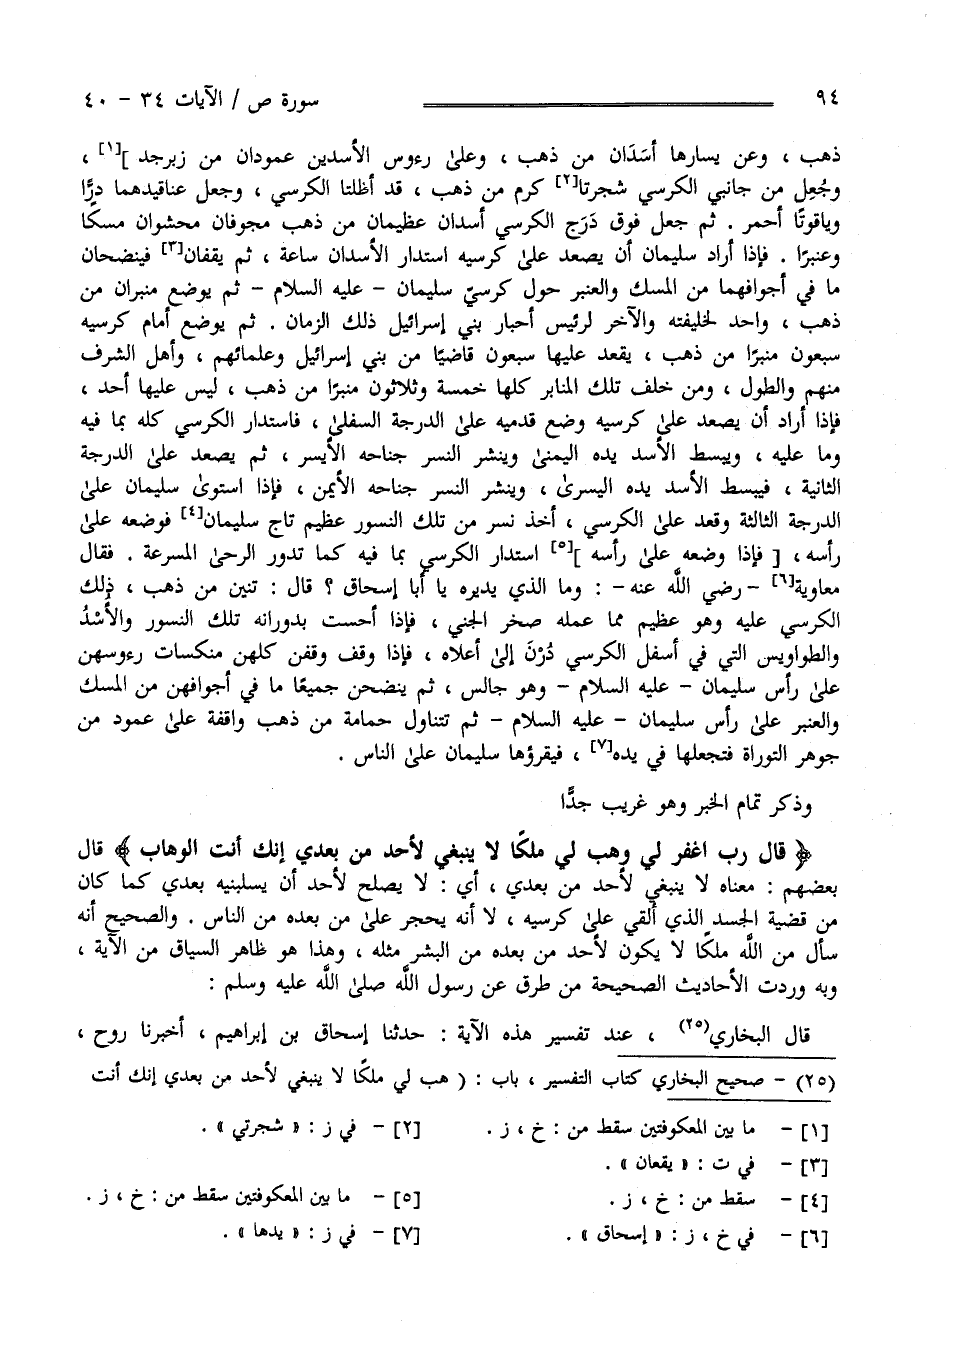 ٩٤ سورة ص / الآيات ٣٤ - ٤٠
ذهب ، وعن يسارها أسَدَان من ذهب ، وعلىٰ رءوس الأسدين عمودان من زبرجد ][١] ،
وجُعِل من جانبي الكرسي شجرتا[٢] كرم من ذهب ، قد أظلتا الكرسي ، وجعل عناقيدهما درًّا
وياقوتًا أحمر . ثم جعل فوق دَرَج الكرسي أسدان عظيمان من ذهب مجوفان محشوان مسكًا
وعنبرًا . فإذا أراد سليمان أن يصعد علىٰ كرسيه استدار الأسدان ساعة ، ثم يقفان[٣] فينضحان
ما في أجوافهما من المسك والعنبر حول كرسيّ سليمان - عليه السلام - ثم يوضع منبران من
ذهب ، واحد لخليفته والآخر لرئيس أحبار بني إسرائيل ذلك الزمان . ثم يوضع أمام كرسيه
سبعون منبرًا من ذهب ، يقعد عليها سبعون قاضيًا من بني إسرائيل وعلمائهم ، وأهل الشرف
منهم والطول ، ومن خلف تلك المنابر كلها خمسة وثلاثون منبرًا من ذهب ، ليس عليها أحد ،
فإذا أراد أن يصعد علىٰ كرسيه وضع قدميه علىٰ الدرجة السفلىٰ ، فاستدار الكرسي كله بما فيه
وما عليه ، ويبسط الأسد يده اليمنىٰ وينشر النسر جناحه الأيسر ، ثم يصعد علىٰ الدرجة
الثانية ، فيبسط الأسد يده اليسرىٰ ، وينشر النسر جناحه الأيمن ، فإذا استوىٰ سليمان علىٰ
الدرجة الثالثة وقعد علىٰ الكرسي ، أخذ نسر من تلك النسور عظيم تاج سليمان[٤] فوضعه علىٰ
رأسه ، [ فإذا وضعه علىٰ رأسه ][٥] استدار الكرسي بما فيه كما تدور الرحىٰ المسرعة . فقال
معاوية[٦] - رضي اللَّه عنه - : وما الذي يديره يا أبا إسحاق ؟ قال : تنين من ذهب ، ذلك
الكرسي عليه وهو عظيم مما عمله صخر الجني ، فإذا أحست بدورانه تلك النسور والأُسْدُ
والطواويس التي في أسفل الكرسي دُرْنَ إلىٰ أعلاه ، فإذا وقف وقفن كلهن منكسات رءوسهن
علىٰ رأس سليمان - عليه السلام - وهو جالس ، ثم ينضحن جميعًا ما في أجوافهن من المسك
والعنبر علىٰ رأس سليمان - عليه السلام - ثم تتناول حمامة من ذهب واقفة علىٰ عمود من
جوهر التوراة فتجعلها في يده[٧] ، فيقرؤها سليمان علىٰ الناس .
وذكر تمام الخبر وهو غريب جدًّا
﴿ قال رب اغفر لي وهب لي ملكًا لا ينبغي لأحد من بعدي إنك أنت الوهاب ﴾ قال
بعضهم : معناه لا ينبغي لأحد من بعدي ، أي : لا يصلح لأحد أن يسلبنيه بعدي كما كان
من قضية الجسد الذي ألقي علىٰ كرسيه ، لا أنه يحجر علىٰ من بعده من الناس . والصحيح أنه
سأل من اللَّه ملكًا لا يكون لأحد من بعده من البشر مثله ، وهذا هو ظاهر السياق من الآية ،
وبه وردت الأحاديث الصحيحة من طرق عن رسول اللَّه صلىٰ اللَّه عليه وسلم :
قال البخاري(٢٥) ، عند تفسير هذه الآية : حدثنا إسحاق بن إبراهيم ، أخبرنا روح ،
(٢٥) - صحيح البخاري كتاب التفسير ، باب : ( هب لي ملكًا لا ينبغي لأحد من بعدي إنك أنت
[١] - ما بين المعكوفتين سقط من : خ ، ز . [٢] - في ز : « شجرتي » .
[٣] - في ت : « يقعان » .
[٤] - سقط من : خ ، ز . [٥] - ما بين المعكوفتين سقط من : خ ، ز .
[٦] - في خ ، ز : « إسحاق » . [٧] - في ز : « يدها » .